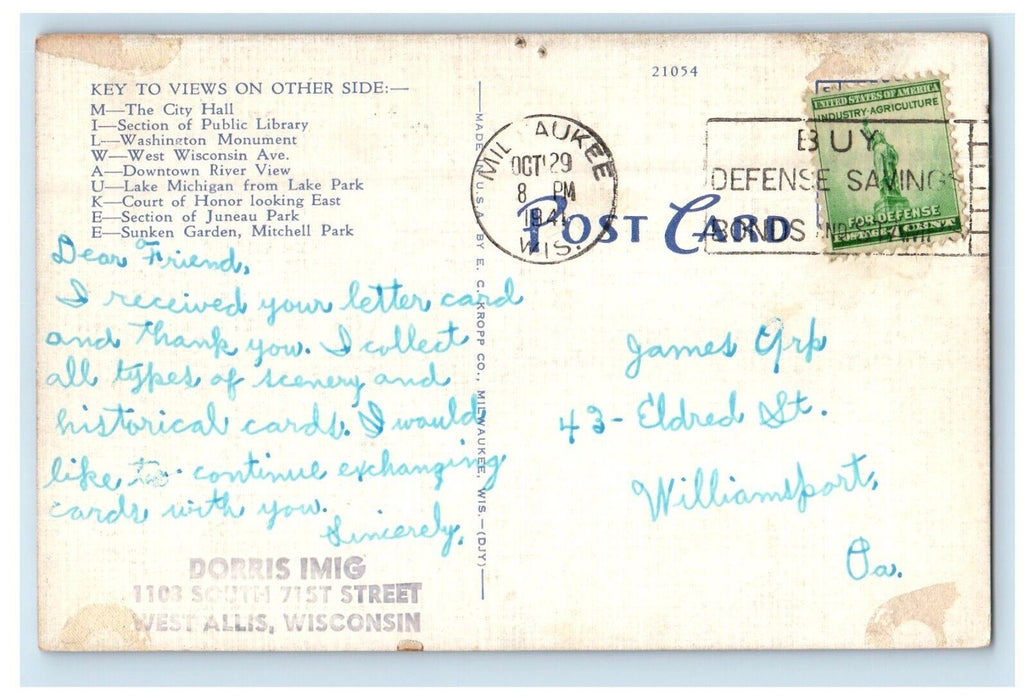 KEY TO VIEWS ON OTHER SIDE:—
M—The City Hall
I—Section of Public Library
L—Washington Monument
W—West Wisconsin Ave.
A—Downtown River View
U—Lake Michigan from Lake Park
K—Court of Honor looking East
E—Section of Juneau Park
E—Sunken Garden, Mitchell Park
Dear Friend,
I received your letter card
and thank you. I collect
all types of scenery and
historical cards. I would
like to continue exchanging
cards with you.
Sincerely,
DORRIS IMIG
1103 SOUTH 71ST STREET
WEST ALLIS, WISCONSIN
—MADE IN U.S.A. BY E. C. KROPP CO., MILWAUKEE, WIS.—(DJY)—
21054
MILWAUKEE
OCT 29
8 PM
1941
WIS.
POST CARD
BUY
DEFENSE SAVINGS
BONDS AND
UNITED STATES OF AMERICA
INDUSTRY-AGRICULTURE
FOR DEFENSE
POSTAGE 1 CENT
James Arp
43- Eldred St.
Williamsport,
Pa.